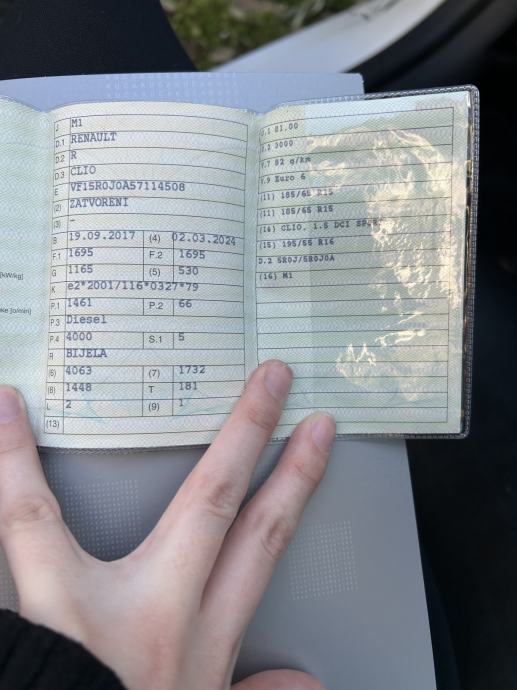 [kW/kg]
J M1
D.1 RENAULT
D.2 R
D.3 CLIO
E VF15R0J0A57114508
(2) ZATVORENI
(3) -
B 19.09.2017 (4) 02.03.2024
F.1 1695 F.2 1695
G 1165 (5) 530
K e2*2001/116*0327*79
P.1 1461 P.2 66
P.3 Diesel
P.4 4000 S.1 5
R BIJELA
(6) 4063 (7) 1732
(8) 1448 T 181
L 2 (9) 1
(13)
U.1 81.00
U.2 3000
V.7 82 g/km
V.9 Euro 6
(11) 185/65 R15
(11) 185/65 R15
(14) CLIO, 1.5 DCI
(15) 195/55 R16
D.2 5R0J/5R0J0A
(16) M1